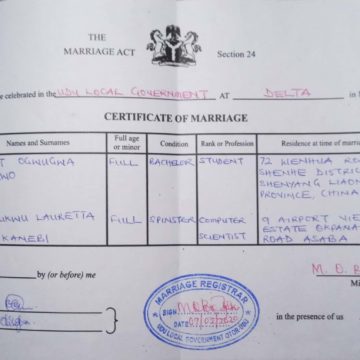 THE
MARRIAGE ACT Section 24
e celebrated in the UDU LOCAL GOVERNMENT AT DELTA in
CERTIFICATE OF MARRIAGE
Names and Surnames Full age or minor Condition Rank or Profession Residence at time of marria
T OGWUGWA FULL BACHELOR STUDENT 72 WENHUA RO
WO SHENHE DISTRIC
SHENYANG LIAON
PROVINCE, CHINA
UKWU LAURETTA FULL SPINSTER COMPUTER 9 AIRPORT VIE
KANEBI SCIENTIST ESTATE OKPANA
ROAD ASABA
by (or before) me M. O. B
Mi
MARRIAGE REGISTRAR
SIGN
DATE 07/02/2020
UDU LOCAL GOVERNMENT OTOR-UDU
in the presence of us